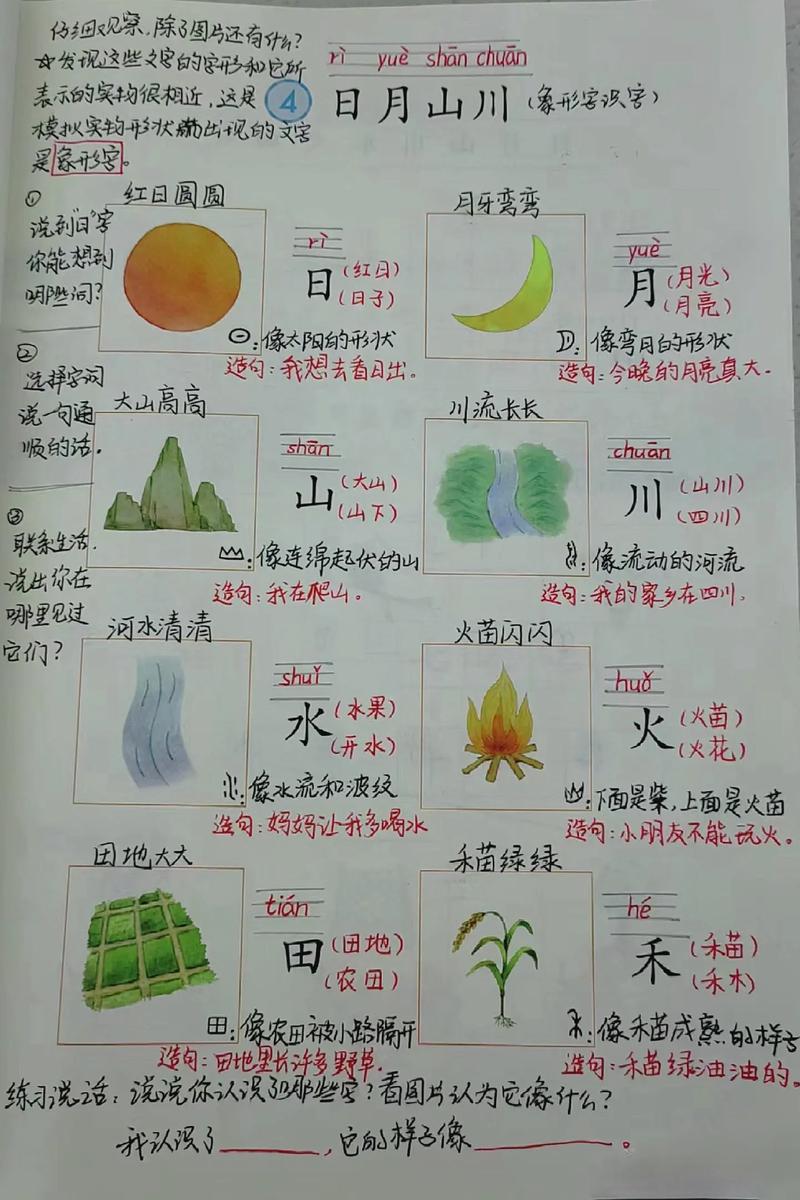 仔细观察,除了图片还有什么?
☆发现这些文字的字形和它所
表示的实物很相近,这是
模拟实物形状而出现的文字
是象形字。
rì yuè shān chuān
4 日月山川(象形字识字)
①
说到"日"字
你能想到
哪些词?
②
选择字词
说一句通
顺的话.
③
联系生活.
说出你在
哪里见过
它们?
红日圆圆
rì
日(红日)
(日子)
:像太阳的形状
造句:我想去看日出。
月牙弯弯
yuè
月(月光)
(月亮)
:像弯月的形状
造句:今晚的月亮真大.
大山高高
shān
山(大山)
(山下)
:像连绵起伏的山
造句:我在爬山。
川流长长
chuān
川(山川)
(四川)
:像流动的河流
造句:我的家乡在四川.
河水清清
shuǐ
水(水果)
(开水)
:像水流和波纹
造句:妈妈让我多喝水
火苗闪闪
huǒ
火(火苗)
(火花)
:下面是柴,上面是火苗
造句:小朋友不能玩火。
田地大大
tián
田(田地)
(农田)
田:像农田被小路隔开
造句:田地里长许多野草.
禾苗绿绿
hé
禾(禾苗)
(禾木)
:像禾苗成熟的样子
造句:禾苗绿油油的。
练习说话:说说你认识了哪些字?看图片认为它像什么?
我认识了______,它的样子像__________。